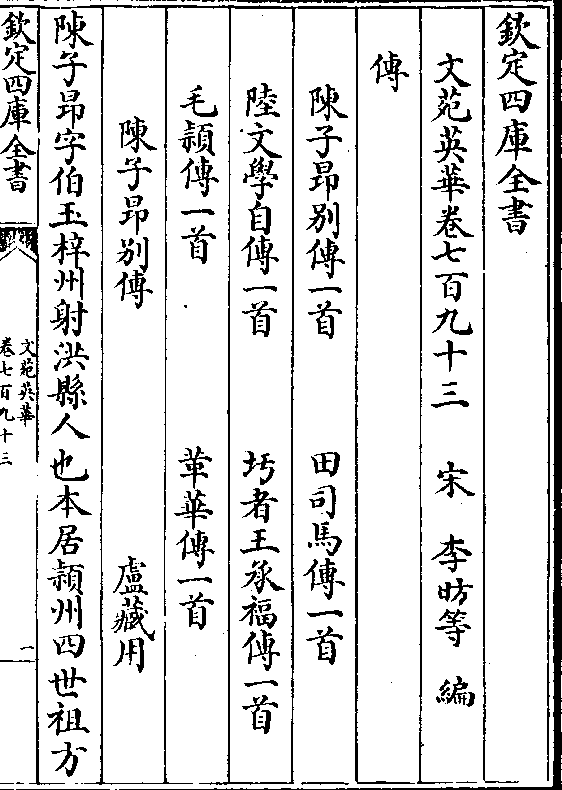 欽定四庫全書
文苑英華卷七百九十三 宋 李昉等 編
傳
陳子昂別傳一首 田司馬傳一首
陸文學自傳一首 圬者王承福傳一首
毛頴傳一首 革華傳一首
陳子昂別傳 盧藏用
陳子昂字伯玉梓州射洪縣人也本居頴州四世祖方
欽定四庫全書
文苑英華
卷七百九十三
一